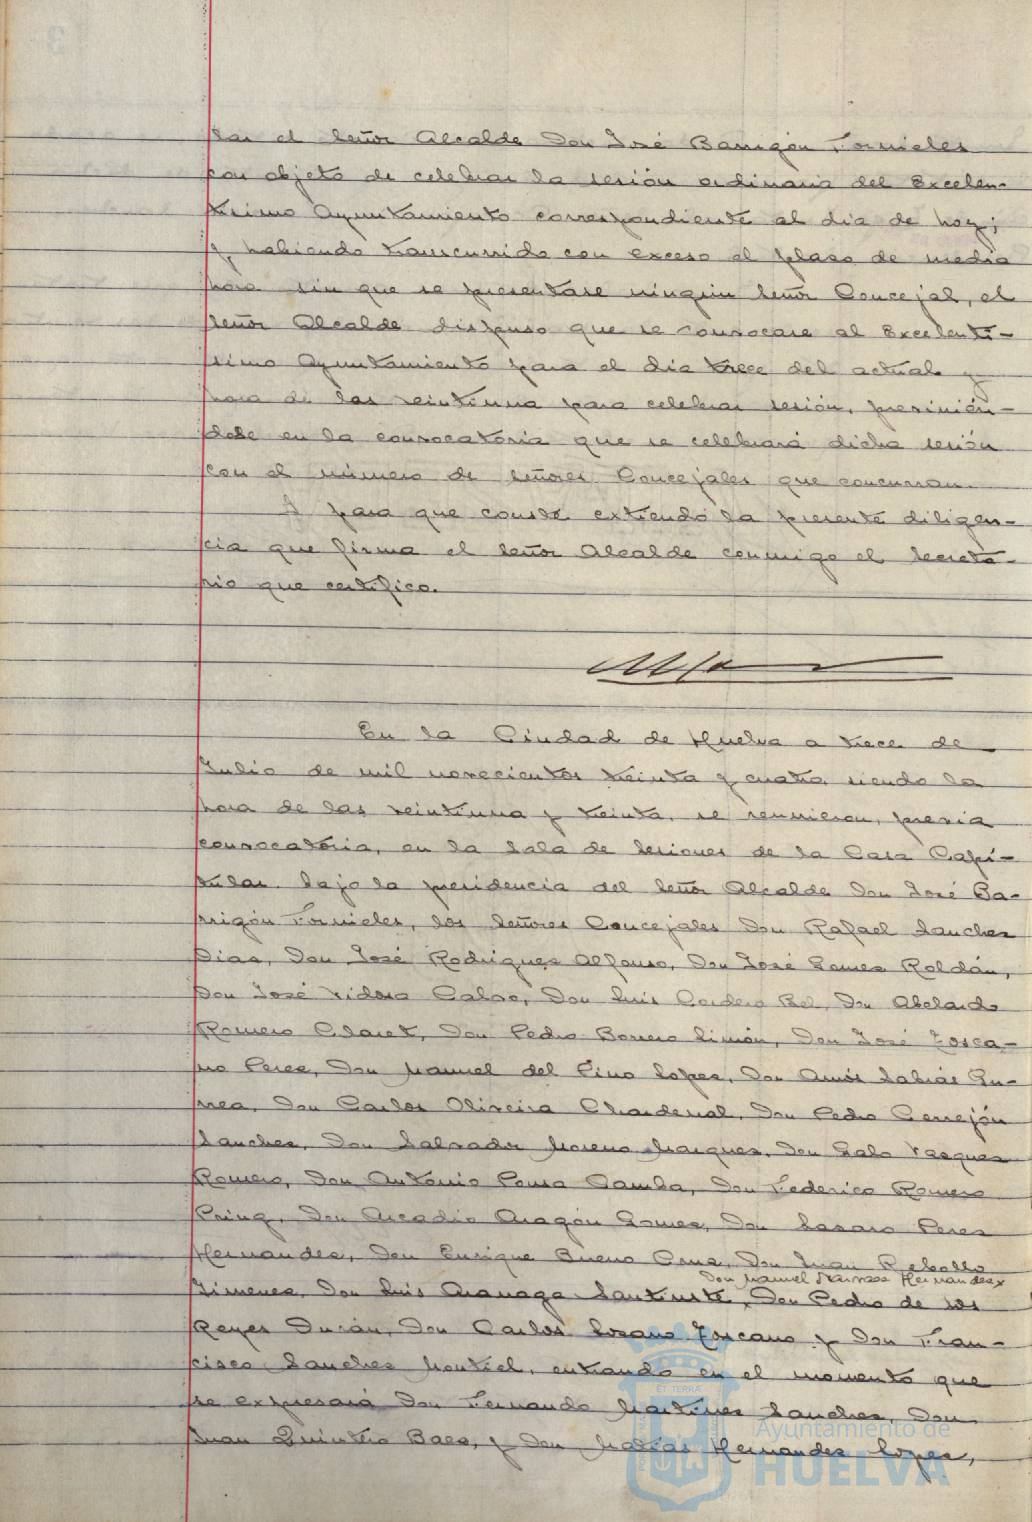 lar el Señor Alcalde Don José Barrigón Fornieles
con objeto de celebrar la sesión ordinaria del Excelen-
tísimo Ayuntamiento correspondiente al día de hoy;
y, habiendo transcurrido con exceso el plazo de media
hora sin que se presentase ningún Señor Concejal, el
Señor Alcalde dispuso que se convocase al Excelentí-
simo Ayuntamiento para el día trece del actual y
hora de las veintiuna para celebrar sesión, previnién-
dose en la convocatoria que se celebrará dicha sesión
con el número de Señores Concejales que concurran.
Y para que conste extiendo la presente diligen-
cia que firma el Señor Alcalde conmigo el Secreta-
rio que certifico.
En la Ciudad de Huelva a trece de
Julio de mil novecientos treinta y cuatro, siendo la
hora de las veintiuna y treinta, se reunieron, previa
convocatoria, en la Sala de Sesiones de la Casa Capi-
tular bajo la presidencia del Señor Alcalde Don José Ba-
rrigón Fornieles, los Señores Concejales Don Rafael Sanchez
Diaz, Don José Rodriguez Alfonso, Don José Gomez Roldán,
Don José Vidosa Calvo, Don Luis Cordero Bel, Don Abelardo
Romero Claret, Don Pedro Borrero Limón, Don José Tosca-
no Perez, Don Manuel del Pino Lopez, Don Amós Sabrás Gu-
rrea, Don Carlos Oliveira Chardenal, Don Pedro Cerrejón
Sanchez, Don Salvador Moreno Marquez, Don Galo Vazquez
Romero, Don Antonio Pousa Camba, Don Federico Romero
Don Arcadio Aragón Gomez, Don Lazaro Perez
Hernandez, Don Enrique Bueno Cruz, Don Juan Rebollo
Don Manuel Hernandez
Jimenez, Don Luis Don Pedro de los
Reyes Durán, Don Carlos Lozano Toscano y Don Fran-
cisco Sanchez Montiel, entrando en el momento que
se expresará Don Fernando Martinez Sanchez, Don
Juan Quintero Baez, y Don Matías Hernandez Lopez,
Ayuntamiento de
HUELVA